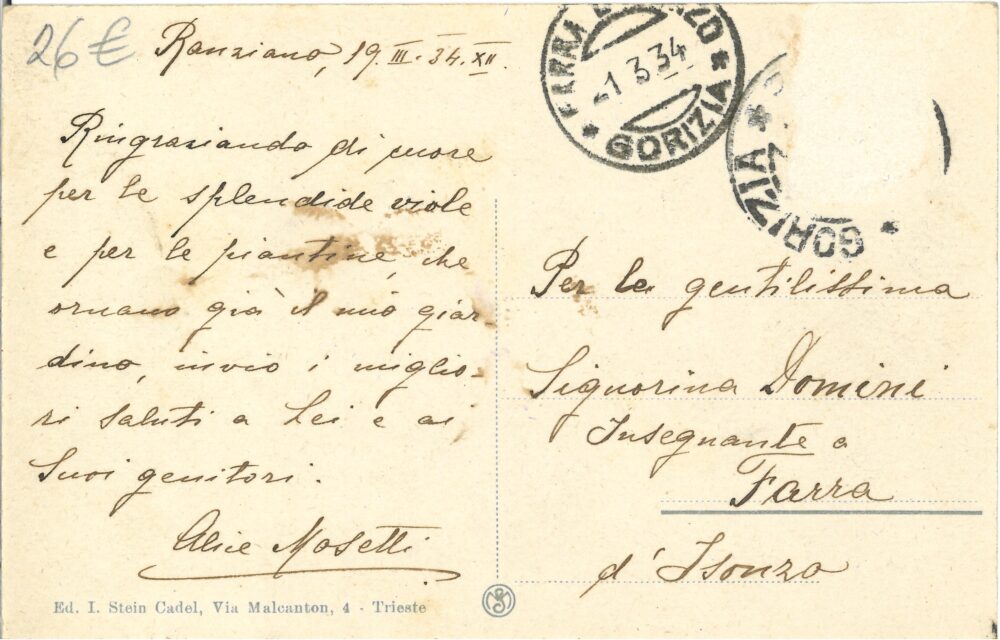 26€
Ranziano, 19.III.34.XII.
FARRA D'ISONZO
-1 3 34
* GORIZIA *
GORIZIA *
Ringraziando di cuore
per le splendide viole
e per le piantine, che
ornano già il mio giar-
dino, invio i miglio-
ri saluti a Lei e ai
Suoi genitori.
Alice Mosetti
Per la gentilissima
Signorina Domini
Insegnante a
Farra
d'Isonzo
Ed. I. Stein Cadel, Via Malcanton, 4 - Trieste